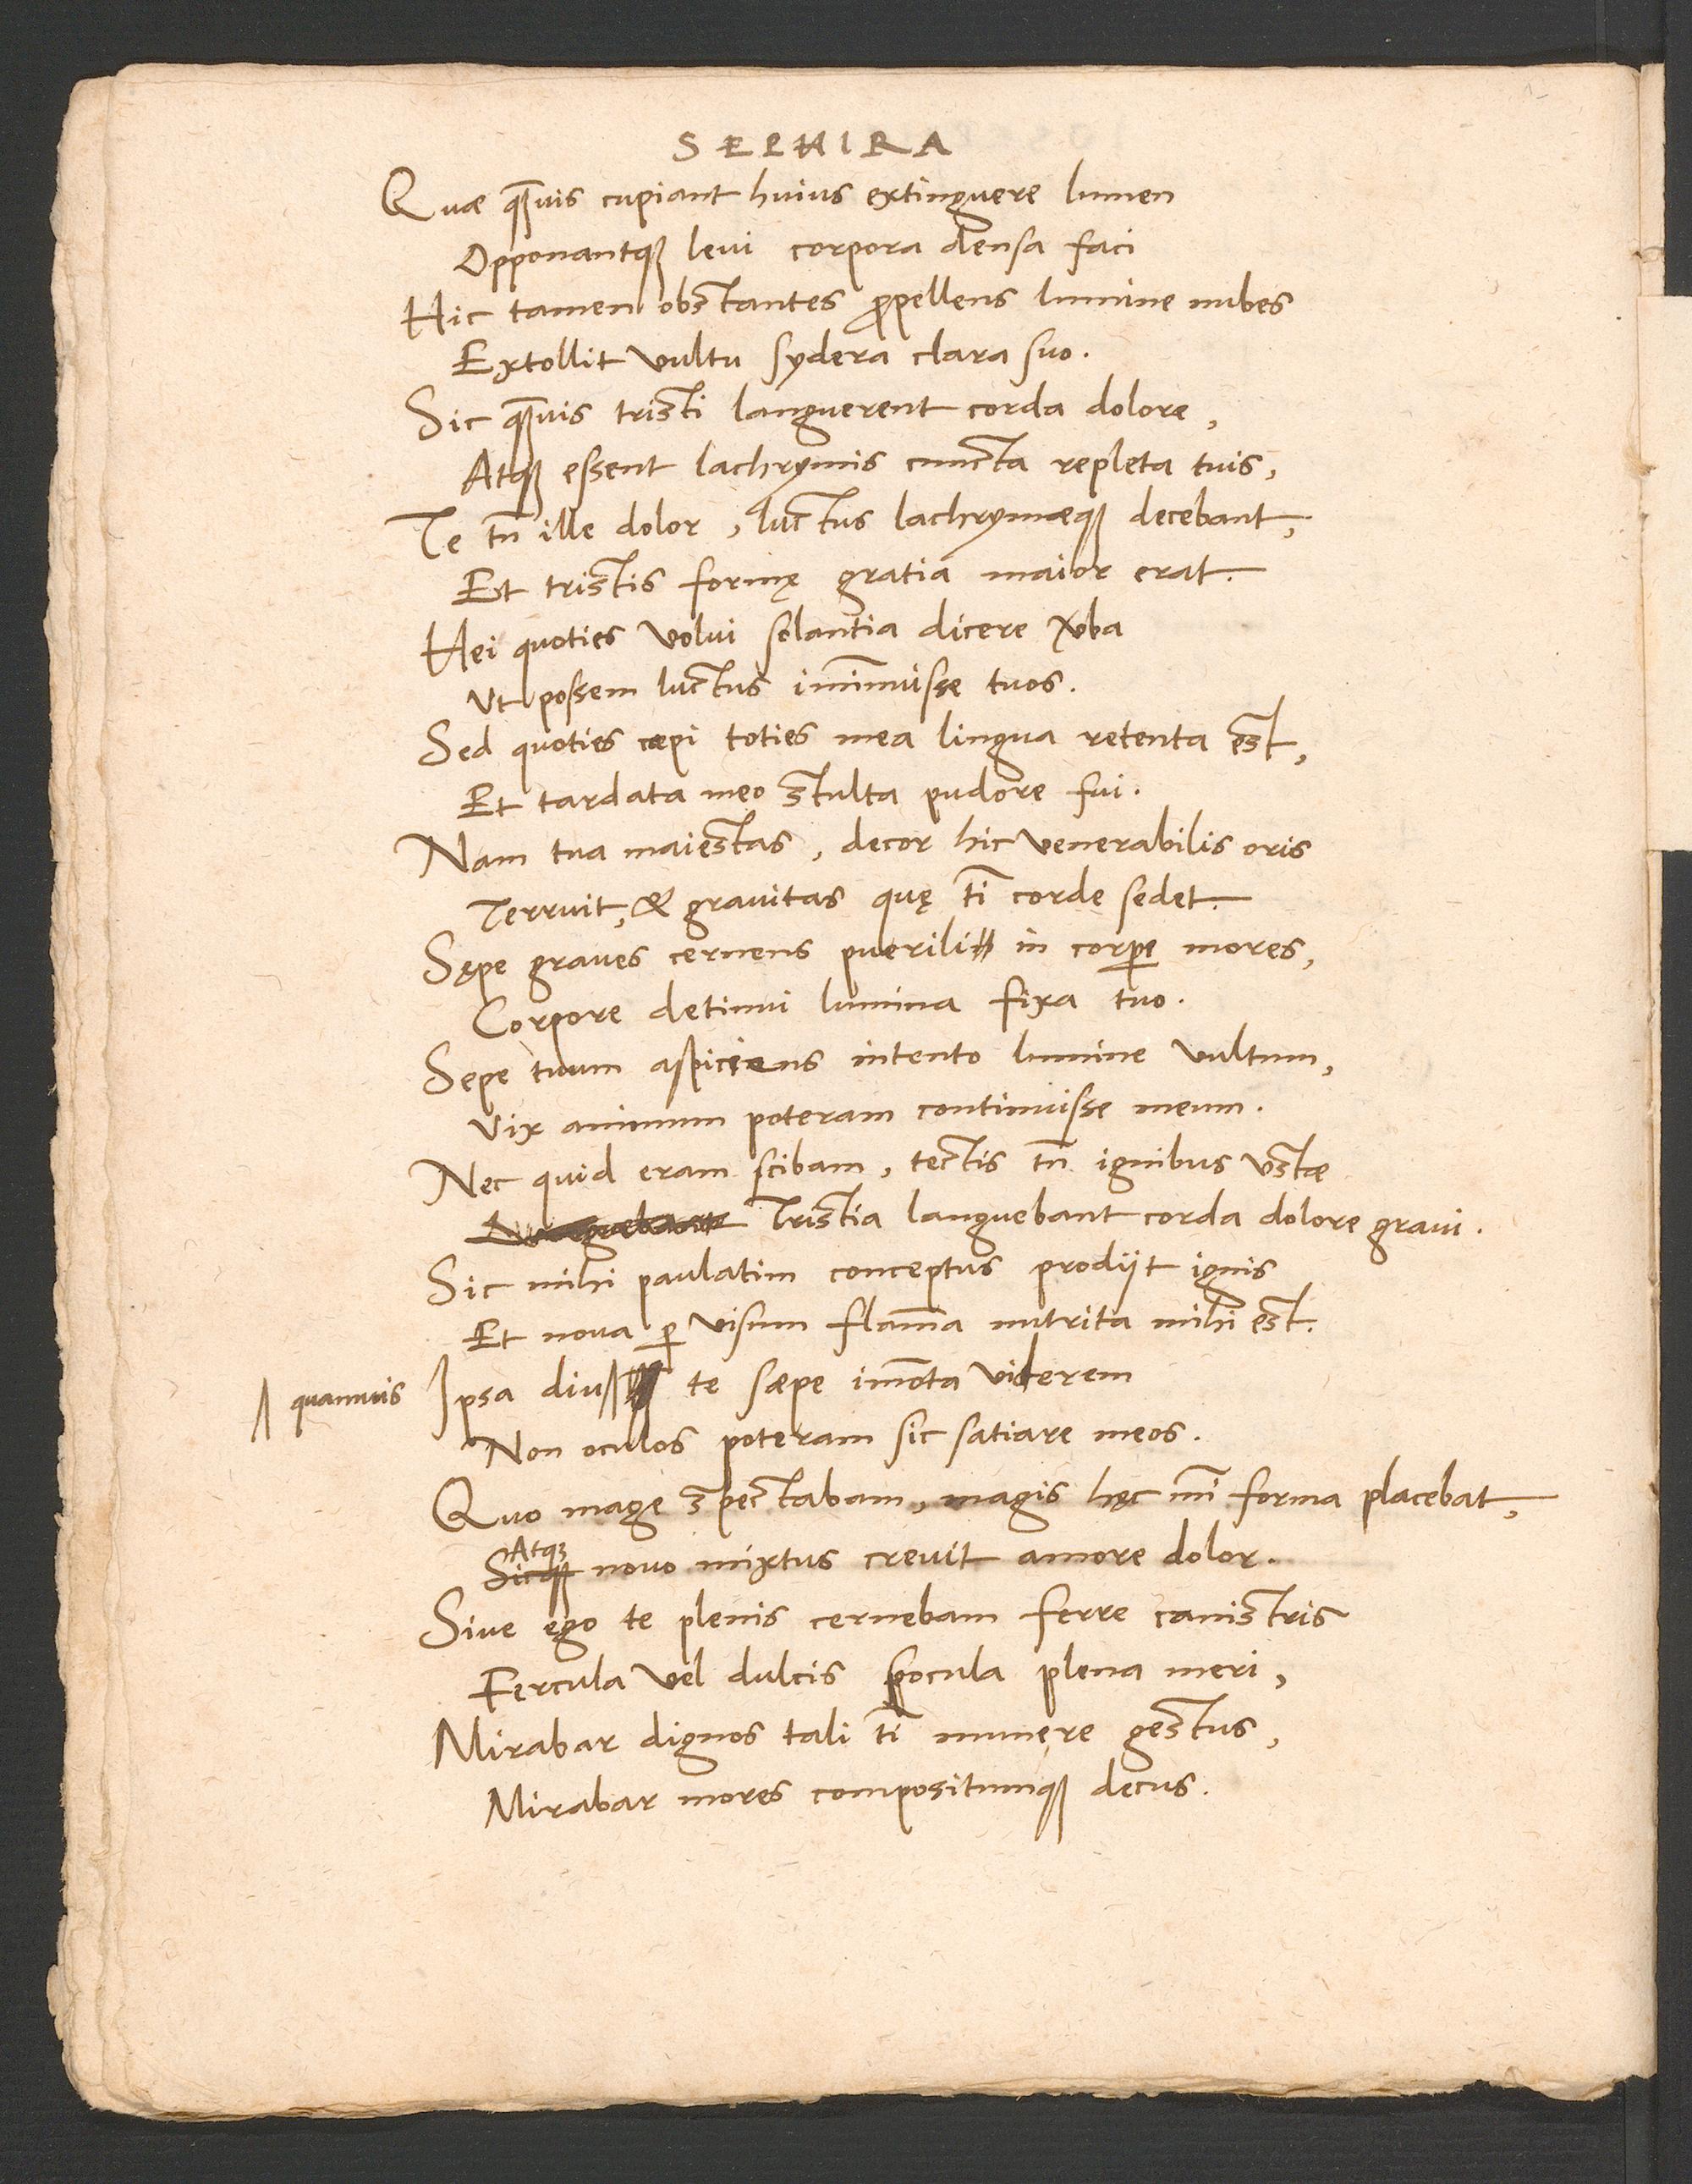 SEPHIRA
Quæ q̃uis cupiant huius extinguere lumen
Opponantq̃ leui corpora densa faci
Hic tamen obstantes p̃pellens lumine nubes
Extollit vultu sydera clara suo.
Sic q̃uis tristi languerent corda dolore,
Atq̃ essent lachrymis cuncta repleta tuis,
Te tñ ille dolor, luctus lachrymæq̃ decebant,
Et tristis formę gratia maior erat.
Hei quoties volui solantia dicere v̄ba
Ut possem luctus im̄inuisse tuos.
Sed quoties cœpi toties mea lingua retenta est,
Et tardata meo stulta pudore fui.
Nam tua maiestas, decor hic venerabilis oris
Terruit, & grauitas quę tī corde sedet.
Sępe graues cernens puerili in corpe mores,
Corpore detinui lumina fixa tuo.
Sępe tuum aspiciens intento lumine vultum,
Vix animum poteram continuisse meum.
Nec quid eram scibam, tectis tñ ignibus vstæ
Tristia languebant corda dolore graui.
Sic mihi paulatim conceptus prodijt ignis
Et noua p̱ visum flam̄a nutrita mihi est.
quamuis Ipsa diu te sæpe im̄ota viderem
Non oculos poteram sic satiare meos.
Quo mage spectabam, magis hęc mī forma placebat,
Atq3
Sicq̃ nouo mixtus creuit amore dolor.
Siue ego te plenis cernebam ferre canistris
Fercula vel dulcis pocula plena meri,
Mirabar dignos tali tī munere gestus,
Mirabar mores compositumq̃ decus.